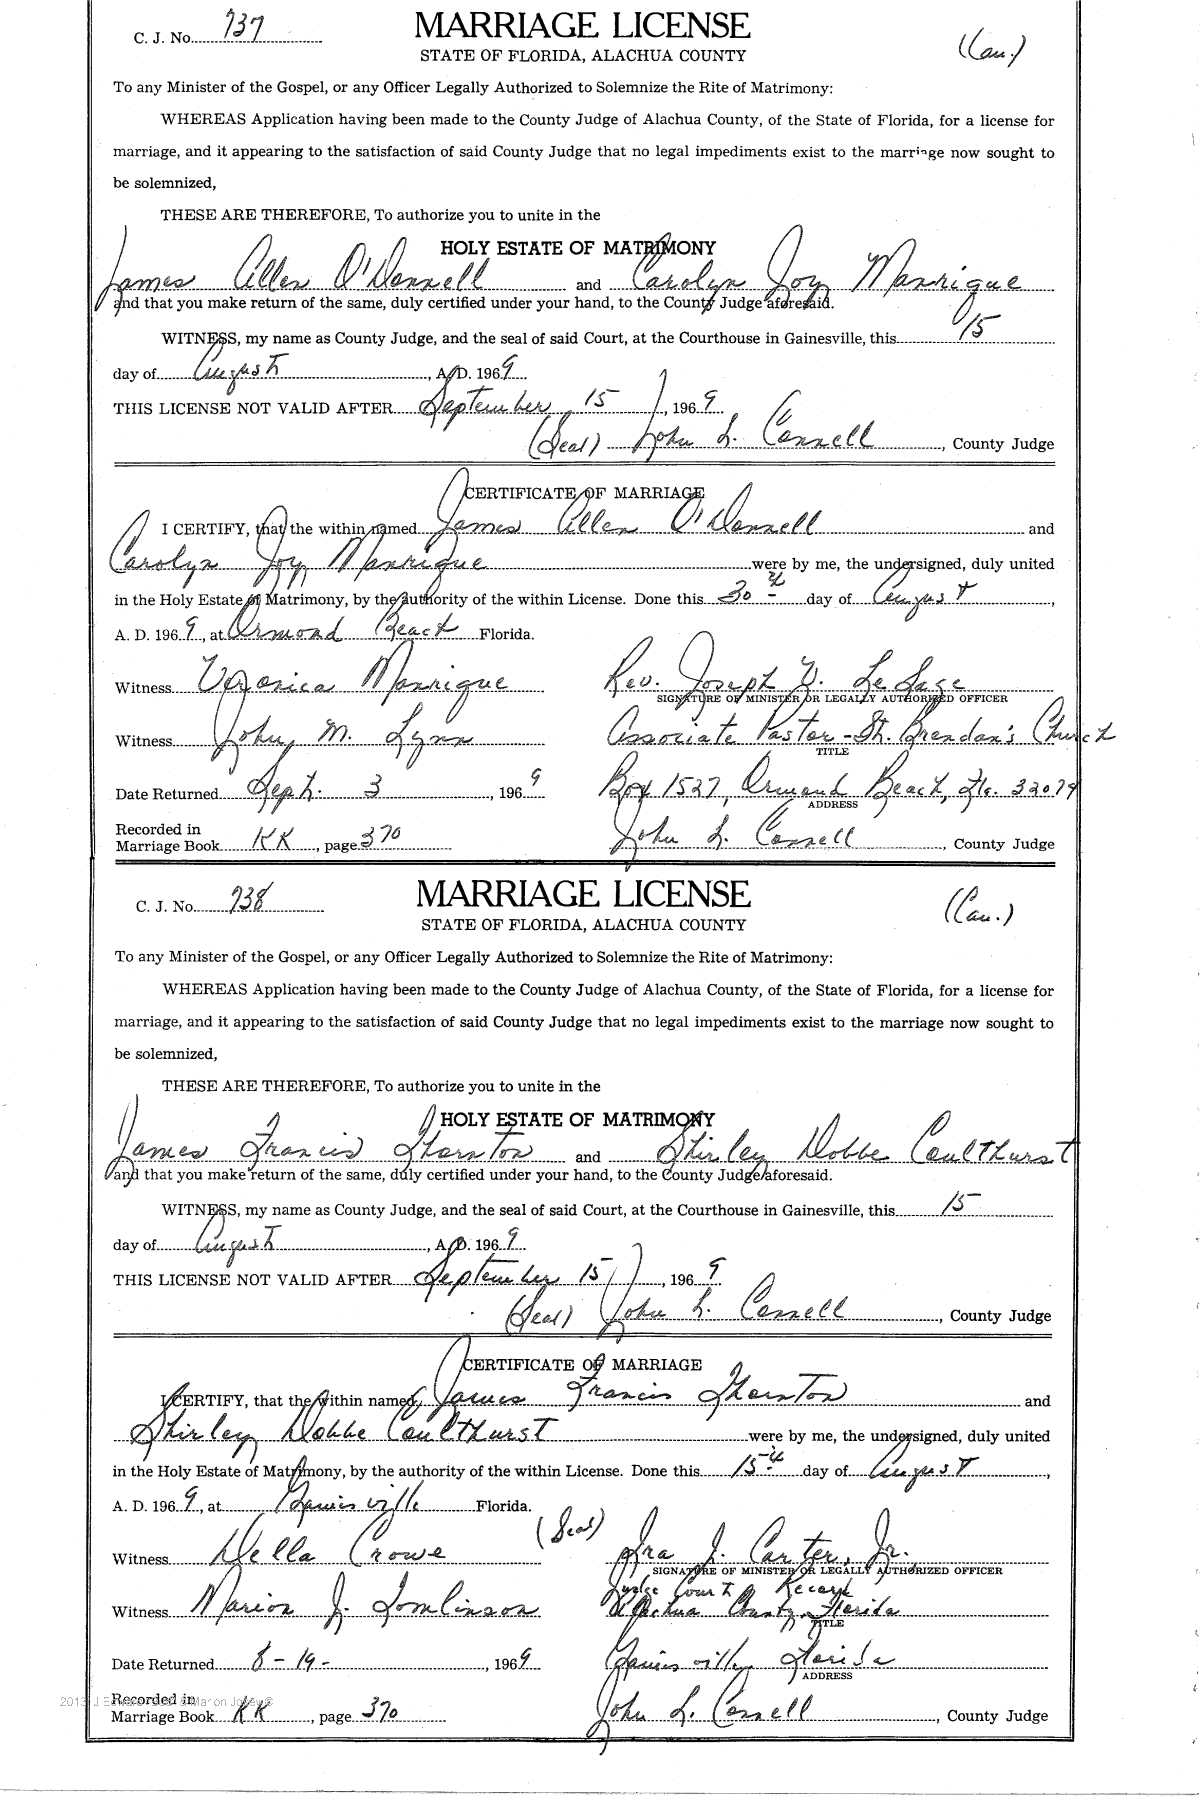 C. J. No. 737
MARRIAGE LICENSE
(Cau.)
STATE OF FLORIDA, ALACHUA COUNTY
To any Minister of the Gospel, or any Officer Legally Authorized to Solemnize the Rite of Matrimony:
WHEREAS Application having been made to the County Judge of Alachua County, of the State of Florida, for a license for
marriage, and it appearing to the satisfaction of said County Judge that no legal impediments exist to the marriage now sought to
be solemnized,
THESE ARE THEREFORE, To authorize you to unite in the
HOLY ESTATE OF MATRIMONY
James Allen O'Donnell and Carolyn Joy Manrique
and that you make return of the same, duly certified under your hand, to the County Judge aforesaid.
WITNESS, my name as County Judge, and the seal of said Court, at the Courthouse in Gainesville, this 15
day of August, A. D. 1969
THIS LICENSE NOT VALID AFTER September 15, 1969
(Seal) John L. Connell, County Judge
CERTIFICATE OF MARRIAGE
I CERTIFY, that the within named James Allen O'Donnell and
Carolyn Joy Manrique were by me, the undersigned, duly united
in the Holy Estate of Matrimony, by the authority of the within License. Done this 30th day of August,
A. D. 1969, at Ormond Beach Florida.
Witness Veronica Manrique Rev. Joseph V. LeSage
SIGNATURE OF MINISTER OR LEGALLY AUTHORIZED OFFICER
Witness John M. Lynn Associate Pastor - St. Brendan's Church
TITLE
Date Returned Sept. 3, 1969 Box 1527, Ormond Beach, Fla. 32074
ADDRESS
Recorded in
Marriage Book KK, page 370 John L. Connell, County Judge
C. J. No. 738
MARRIAGE LICENSE
(Cau.)
STATE OF FLORIDA, ALACHUA COUNTY
To any Minister of the Gospel, or any Officer Legally Authorized to Solemnize the Rite of Matrimony:
WHEREAS Application having been made to the County Judge of Alachua County, of the State of Florida, for a license for
marriage, and it appearing to the satisfaction of said County Judge that no legal impediments exist to the marriage now sought to
be solemnized,
THESE ARE THEREFORE, To authorize you to unite in the
HOLY ESTATE OF MATRIMONY
James Francis Thornton and Shirley Dobbe Coulthurst
and that you make return of the same, duly certified under your hand, to the County Judge aforesaid.
WITNESS, my name as County Judge, and the seal of said Court, at the Courthouse in Gainesville, this 15
day of August, A. D. 1969
THIS LICENSE NOT VALID AFTER September 15, 1969
(Seal) John L. Connell, County Judge
CERTIFICATE OF MARRIAGE
I CERTIFY, that the within named James Francis Thornton and
Shirley Dobbe Coulthurst were by me, the undersigned, duly united
in the Holy Estate of Matrimony, by the authority of the within License. Done this 15th day of August,
A. D. 1969, at Gainesville Florida.
(Seal)
Witness Della Crowe Ira J. Carter, Jr.
SIGNATURE OF MINISTER OR LEGALLY AUTHORIZED OFFICER
Judge Court of Record
Witness Marion J. Tomlinson Alachua County, Florida
TITLE
Date Returned 8-19-, 1969 Gainesville, Florida
ADDRESS
Recorded in
Marriage Book KK, page 370 John L. Connell, County Judge